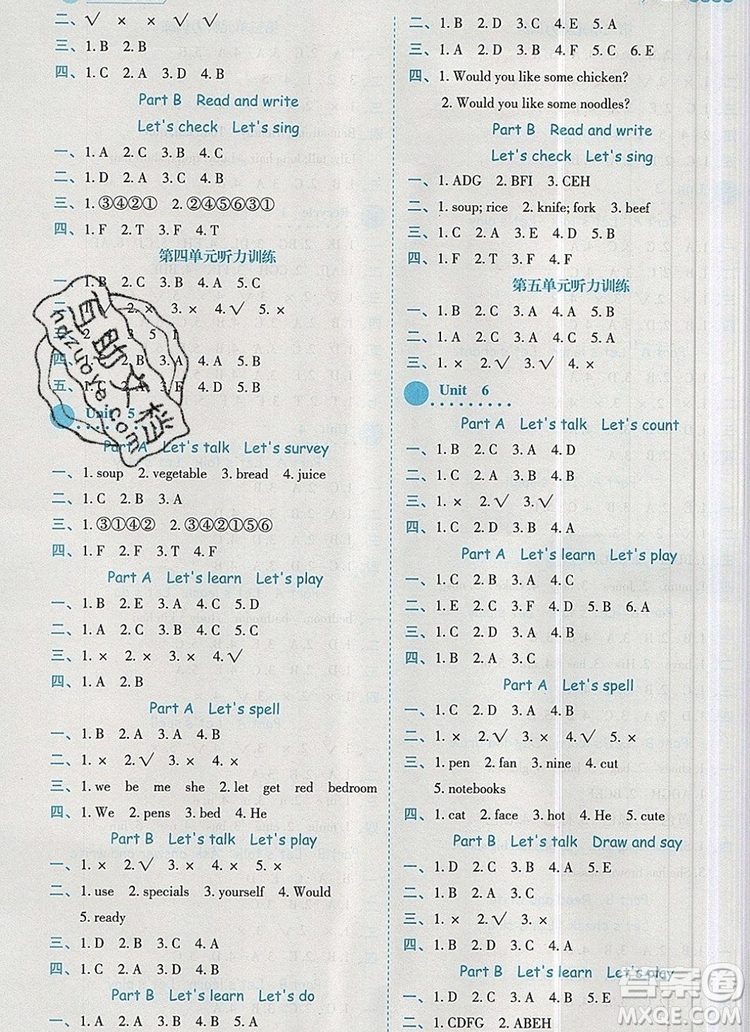 二、√ × × √ √
三、1. C 2. B 3. B 4. C
四、1. C 2. A 3. D 4. B
Part B Read and write
Let's check Let's sing
一、1. A 2. C 3. B 4. C
三、1. ③④②① 2. ②④⑤⑥③①
四、1. F 2. T 3. F 4. T
第四单元听力训练
一、1. B 2. C 3. A 4. A 5. C
2. × 3. × 4. √ 5. ×
3 5 1
四、1. C 2. B 3. A 4. A 5. B
五、1. C 2. A 3. E 4. D 5. B
Unit 5
Part A Let's talk Let's survey
一、1. soup 2. vegetable 3. bread 4. juice
二、1. C 2. B 3. A
三、1. ③①④② 2. ③④②①⑤⑥
四、1. F 2. F 3. T 4. F
Part A Let's learn Let's play
一、1. A 2. B 3. A 4. C 5. D
二、1. B 2. D 3. E 4. A 5. C
三、1. × 2. × 3. √ 4. × 5. √
四、1. A 2. B
Part A Let's spell
一、1. B 2. D 3. A 4. C
二、1. × 2. √ 3. √ 4. ×
三、1. we be me she 2. let get red bedroom
四、1. We 2. pens 3. bed 4. He
Part B Let's talk Let's play
一、1. × 2. √ 3. × 4. √ 5. ×
二、1. use 2. specials 3. yourself 4. Would
5. ready
三、1. D 2. D 3. A 4. C 5. B
四、1. B 2. C 3. A 4. D
Part B Let's learn Let's do
一、1. B 2. A 3. A 4. B 5. A
三、1. B 2. D 3. A 4. F 5. C 6. E
四、1. Would you like some chicken?
2. Would you like some noodles?
Part B Read and write
Let's check Let's sing
一、1. ADG 2. BFI 3. CEH
二、1. soup; rice 2. knife; fork 3. beef
三、1. C 2. B 3. A 4. D
四、1. T 2. F 3. F 4. F
第五单元听力训练
一、1. B 2. C 3. A 4. C 5. B
二、1. A 2. B 3. A 4. B
三、1. × 2. √ 3. √ 4. ×
Unit 6
Part A Let's talk Let's count
一、1. C 2. B 3. A 4. D
二、1. C 2. B 3. A 4. A
三、1. × 2. √ 3. ×
四、1. B 2. C 3. D 4. A
Part A Let's learn Let's play
一、1. C 2. D 3. A 4. B
二、1. E 2. C 3. F 4. D 5. B 6. A
三、1. D 2. C 3. A 4. B 5. E
四、1. B 2. A 3. C
Part A Let's spell
一、1. C 2. D 3. A 4. B
二、1. × 2. × 3. √ 4. × 5. √
三、1. pen 2. fan 3. nine 4. cut
5. notebooks
四、1. cat 2. face 3. hot 4. He 5. cute
Part B Let's talk Draw and say
一、1. D 2. C 3. B 4. A 5. E
二、1. B 2. D 3. A 4. C
三、1. D 2. C 3. A 4. B
四、1. B 2. D 3. A 4. C
Part B Let's learn Let's play
一、1. D 2. C 3. A 4. B
二、1. CDFG 2. ABEH
百助文档
hpznoye.com
答案圈
MXQE.COM